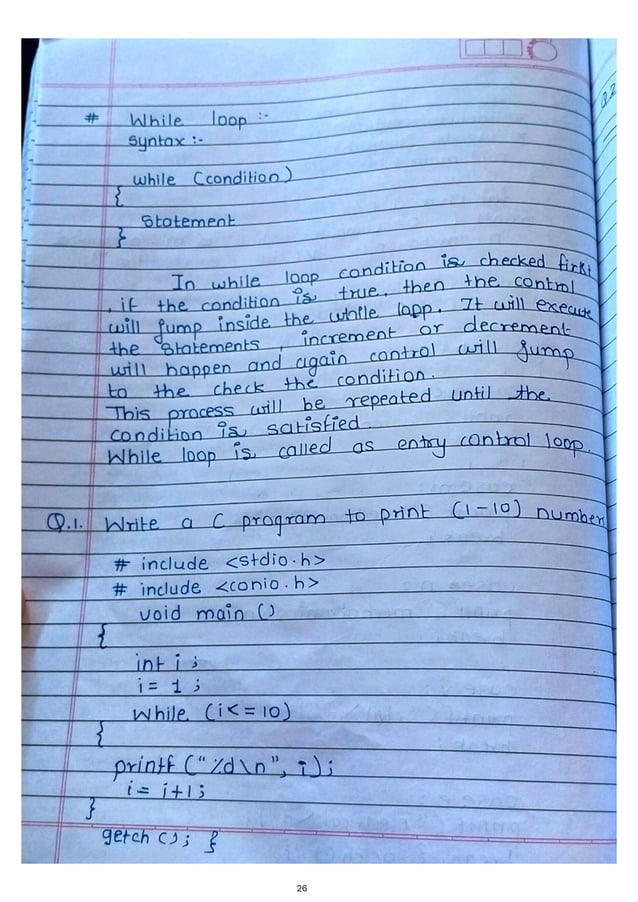 # While loop :-
Syntax :-
while (condition)
{
Statement
}
In while loop condition is checked first
, if the condition is true, then the control
will jump inside the while loop. It will execute
the statements, increment or decrement
will happen and again control will jump
to the check the condition.
This process will be repeated until the
condition is satisfied.
While loop is called as entry control loop.
Q.1. Write a C program to print (1-10) number
# include <stdio.h>
# include <conio.h>
void main ()
{
int i ;
i = 1 ;
While (i<=10)
{
printf ("%d\n", i);
i = i+1;
}
getch (); }
26